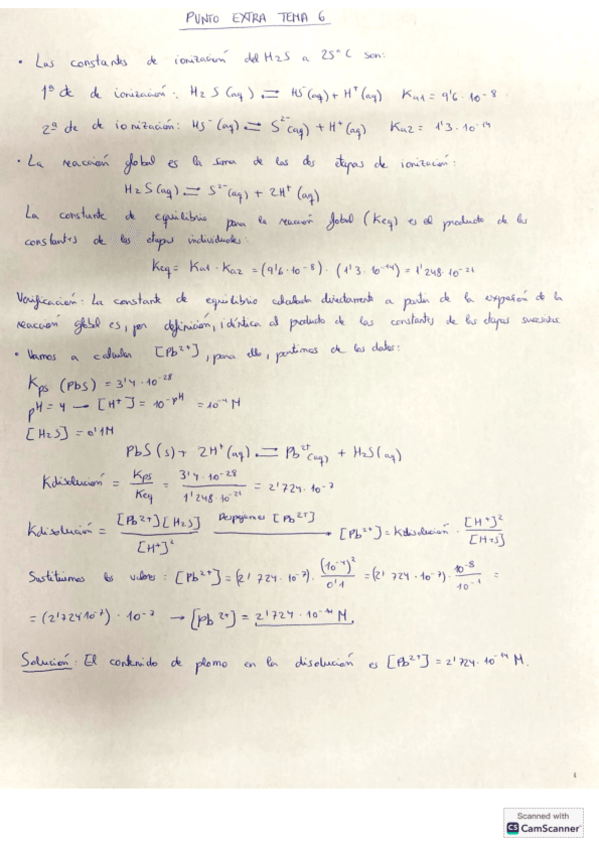 PUNTO EXTRA TEMA 6
• Las constantes de ionización del H2S a 25°C son:
1ª cte de ionización: H2S (aq) ⇌ HS⁻(aq) + H⁺ (aq) Ka1 = 9'6·10⁻⁸
2ª cte de ionización: HS⁻ (aq) ⇌ S²⁻(aq) + H⁺ (aq) Ka2 = 1'3·10⁻¹⁴
• La reacción global es la suma de las dos etapas de ionización:
H2S (aq) ⇌ S²⁻ (aq) + 2H⁺ (aq)
La constante de equilibrio para la reacción global (Keq) es el producto de las
constantes de las etapas individuales:
Keq = Ka1 · Ka2 = (9'6·10⁻⁸) · (1'3·10⁻¹⁴) = 1'248·10⁻²¹
Verificación: La constante de equilibrio calculada directamente a partir de la expresión de la
reacción global es, por definición, idéntica al producto de las constantes de las etapas sucesivas.
• Vamos a calcular [Pb²⁺], para ello, partimos de los datos:
Kps (PbS) = 3'4·10⁻²⁸
pH = 4 → [H⁺] = 10⁻ᵖᴴ = 10⁻⁴ M
[H2S] = 0'1M
PbS (s) + 2H⁺ (aq) ⇌ Pb²⁺(aq) + H2S (aq)
Kdisolución = Kps / Keq = 3'4·10⁻²⁸ / 1'248·10⁻²¹ = 2'724·10⁻⁷
Kdisolución = [Pb²⁺][H2S] / [H⁺]² Despejamos [Pb²⁺] → [Pb²⁺] = Kdisolución · [H⁺]² / [H2S]
Sustituimos los valores: [Pb²⁺] = (2'724·10⁻⁷) · (10⁻⁴)² / 0'1 = (2'724·10⁻⁷) · 10⁻⁸ / 10⁻¹ =
= (2'724·10⁻⁷) · 10⁻⁷ → [Pb²⁺] = 2'724·10⁻¹⁴ M.
Solución: El contenido de plomo en la disolución es [Pb²⁺] = 2'724·10⁻¹⁴ M.
Scanned with
CS CamScanner